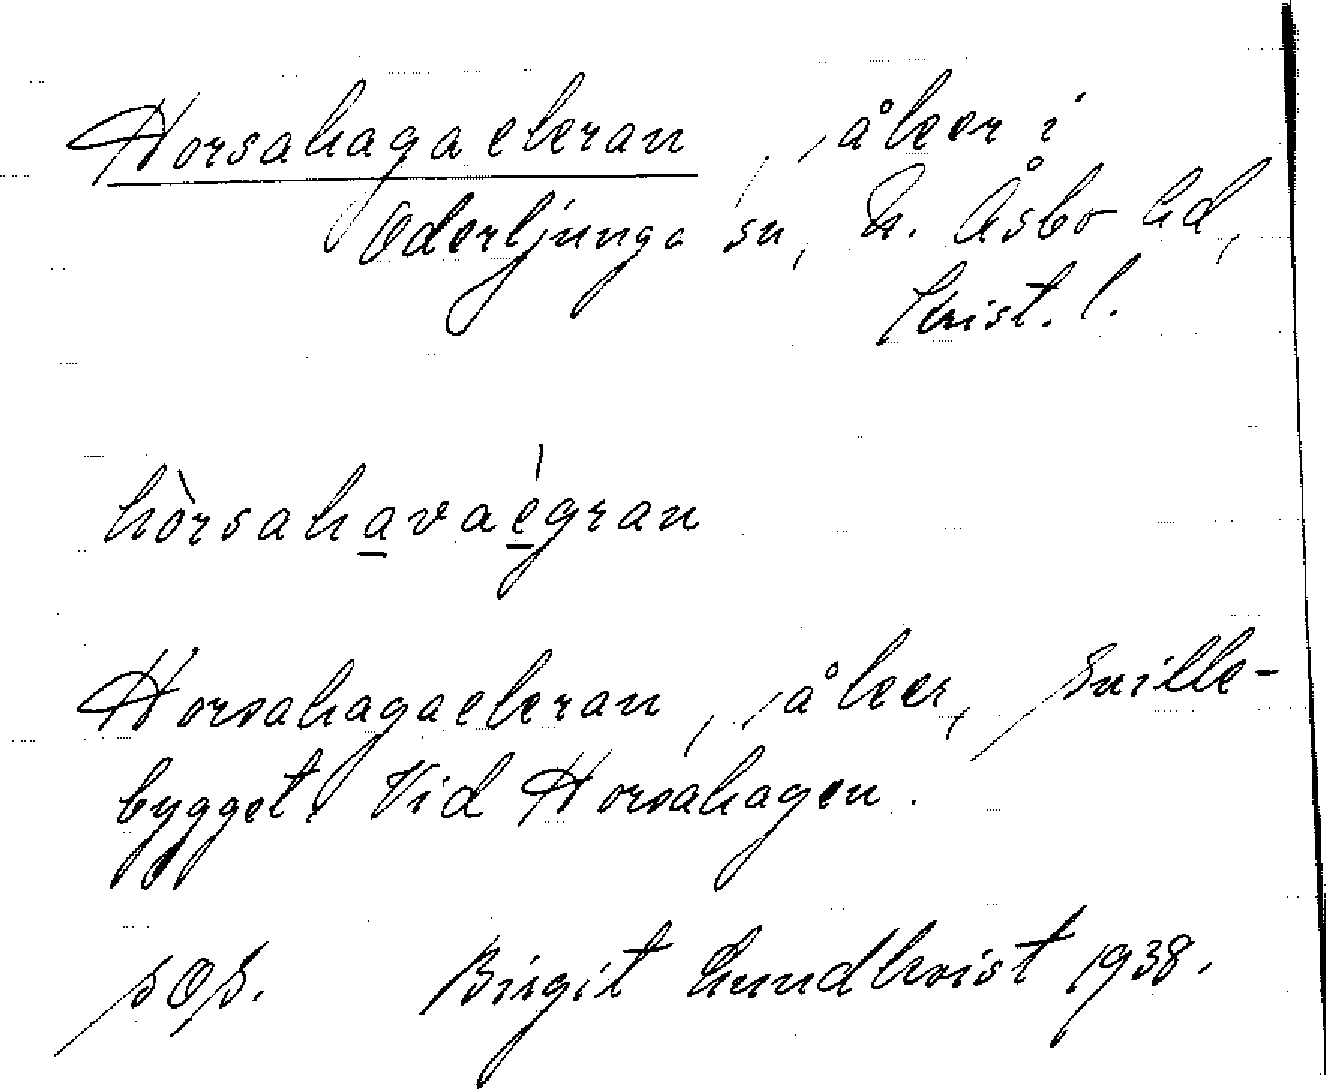 Horsahagaekran, åker i
Oderljunga sn, N. Åsbo hd,
Krist. l.
hòrsahavaégran
Horsahagaekran, åker, Snille-
bygget. Vid Horsahagen.
Birgit Lundkvist 1938.